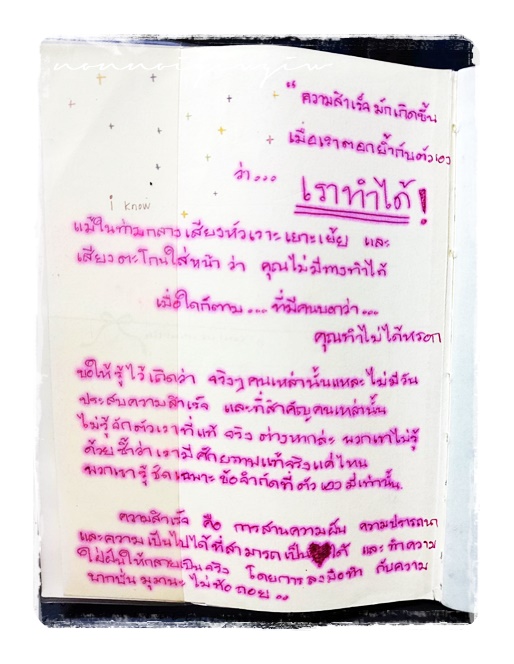 "ความสำเร็จมักเกิดขึ้น
เมื่อเราตอกย้ำกับตัวเอง
ว่า...
เราทำได้!
i know
แม้ในท่ามกลางเสียงหัวเราะเยาะเย้ย และ
เสียงตะโกนใส่หน้า ว่า คุณไม่มีทางทำได้
เมื่อใดก็ตาม... ที่มีคนบอกว่า...
คุณทำไม่ได้หรอก
ขอให้รู้ไว้เถิดว่า จริงๆคนเหล่านั้นแหละไม่มีวัน
ประสบความสำเร็จ และที่สำคัญคนเหล่านั้น
ไม่รู้จักตัวเราที่แท้ จริง ต่างหากล่ะ พวกเขาไม่รู้
ด้วยซ้ำว่าเรามีศักยภาพแท้จริงแค่ไหน
พวกเขารู้ชัดเฉพาะ ข้อจำกัดที่ตัวเองมีเท่านั้น
ความสำเร็จ คือ การสานความฝัน ความปรารถนา
และความเป็นไปได้ที่สามารถเป็น♥ได้ และ ทำความ
ใฝ่ฝันให้กลายเป็นจริง โดยการลงมือทำ กับความ
บากบั่นมุมานะ ไม่ท้อถอย"